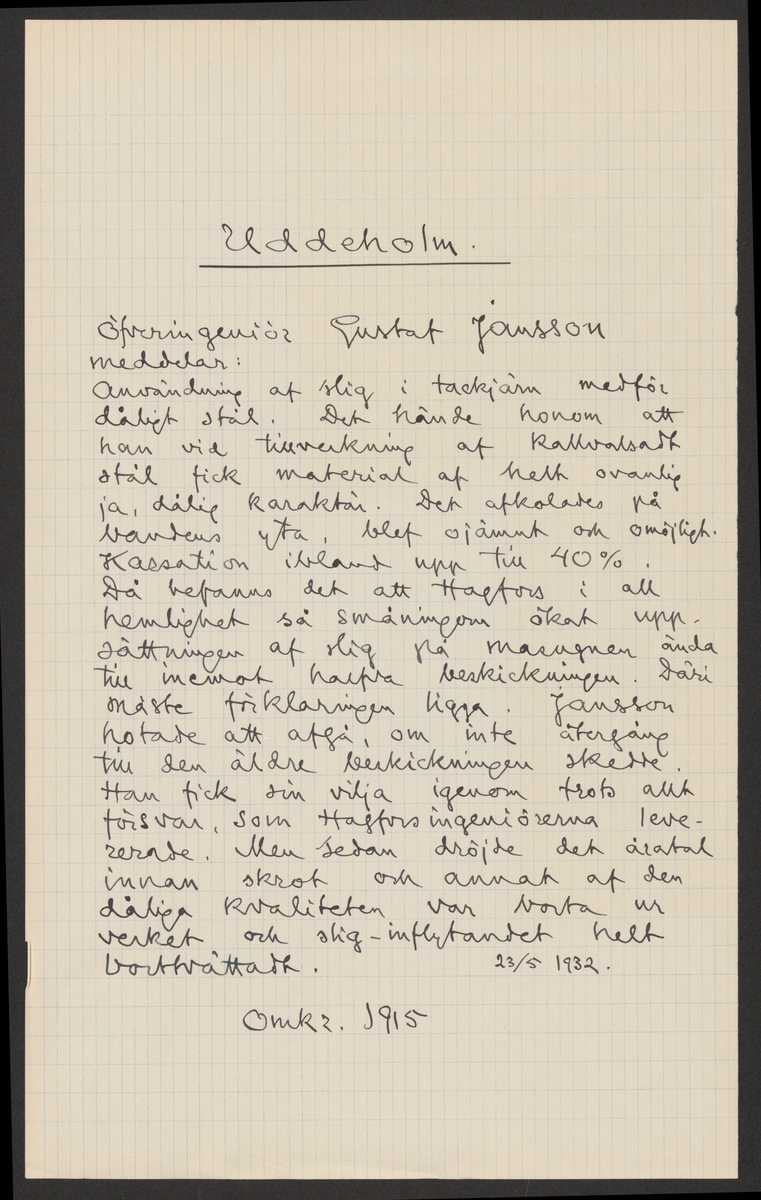 Uddeholm.
Öfveringeniör Gustaf Jansson
meddelar:
Användning af slig i tackjärn medför
dåligt stål. Det hände honom att
han vid tillverkning af kallvalsadt
stål fick material af helt ovanlig
ja, dålig karaktär. Det afkolades på
bandens yta, blef ojämnt och omöjligt.
Kassation ibland upp till 40%.
Då befanns det att Hagfors i all
hemlighet så småningom ökat upp-
sättningen af slig på masugnen ända
till inemot halfva beskickningen. Däri
måste förklaringen ligga. Jansson
hotade att afgå, om inte återgång
till den äldre beskickningen skedde.
Han fick sin vilja igenom trots allt
försvar, som Hagforsingeniörerna leve-
rerade. Men sedan dröjde det åratal
innan skrot och annat af den
dåliga kvaliteten var borta ur
verket och slig-inflytandet helt
borttvättadt. 23/5 1932.
Omkr. 1915